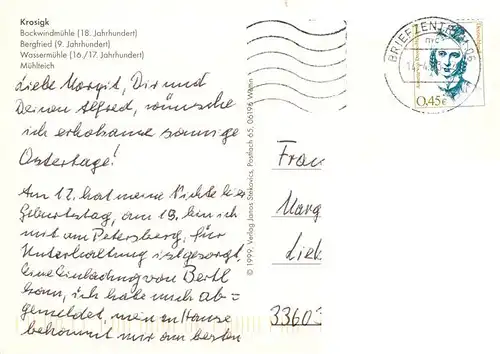 Krosigk
Bockwindmühle (18. Jahrhundert)
Bergfried (9. Jahrhundert)
Wassermühle (16./17. Jahrhundert)
Mühlteich
Liebe Margit, Dir und
Deinen Alfred, wünsche
ich erholsame sonnige
Ostertage!
Am 17. hat meine Nichte
Geburtstag, am 19. bin ich
mit am Petersberg, für
Unterhaltung ist gesorgt,
Eine Einladung von Bertl
kam, ich habe mich ab=
gemeldet, mein zu Hause
bekommt mir am besten
© 1999, Verlag Janos Stekovics, Postfach 65, 06196 Wettin
BRIEFZENTRUM 06
Deutschland
0,45€
Frau
Marg
Lieb
33603